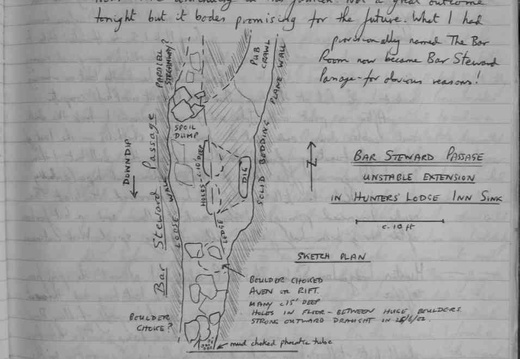 tonight but it bodes promising for the future. What I had
provisionally named The Bar
Room now became Bar Steward
Passage - for obvious reasons!
PARALLEL
SPOIL
DUMP
PUB
CRAWL
PLANE WALL
SOLID BEDDING
DIG
LEDGE
LOOSE WALL
Bar Steward Passage
DOWNDIP
N
BAR STEWARD PASSAGE
UNSTABLE EXTENSION
IN HUNTERS LODGE INN SINK
c. 10 ft
SKETCH PLAN
BOULDER CHOKED
AVEN OR RIFT.
MANY c15' DEEP
HOLES IN FLOOR - BETWEEN HUGE BOULDERS
STRONG OUTWARD DRAUGHT IN
BOULDER
CHOKE?
mud choked phreatic tube